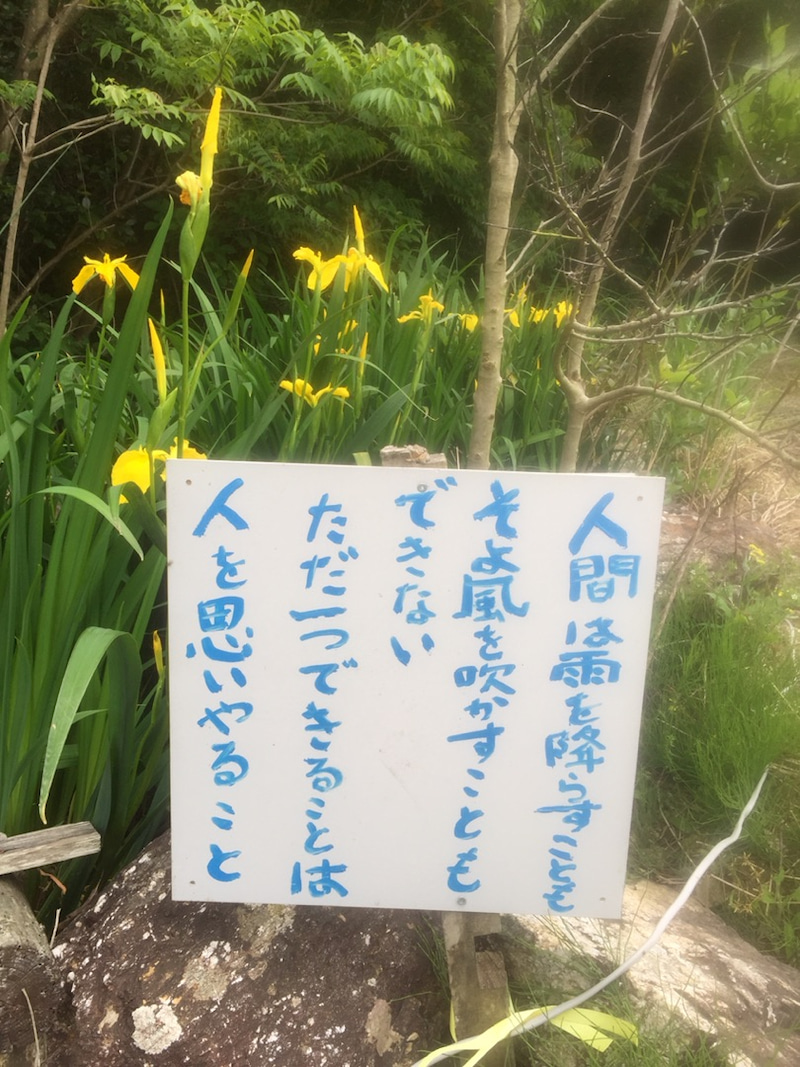 人間は雨を降らすことも
そよ風を吹かすことも
できない
ただ一つできることは
人を思いやること